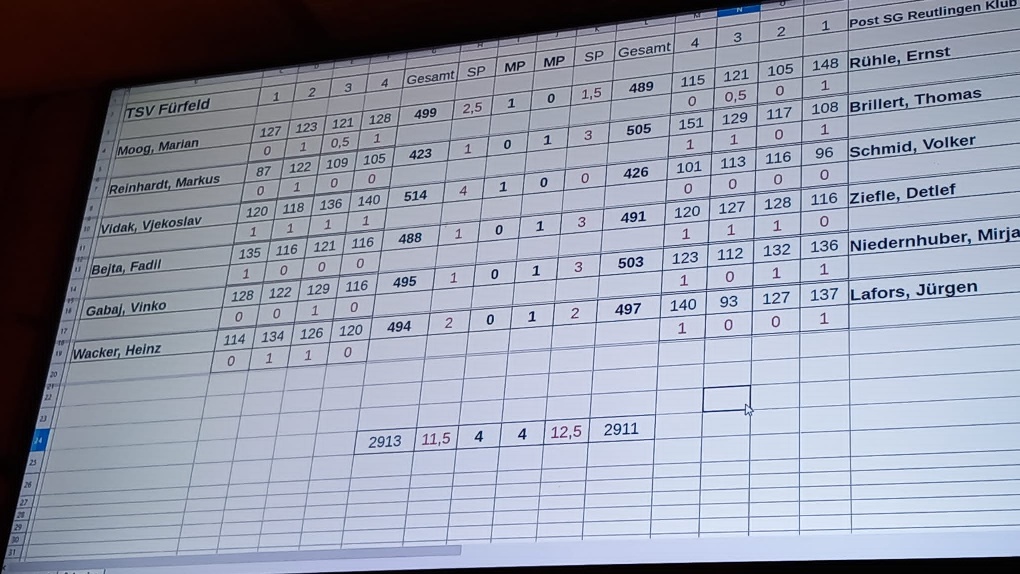 TSV Fürfeld 1 2 3 4 Gesamt SP MP MP SP Gesamt 4 3 2 1 Post SG Reutlingen Klub
Moog, Marian 127 123 121 128 499 2,5 1 0 1,5 489 115 121 105 148 Rühle, Ernst
0 1 0,5 1 0 0,5 0 1
Reinhardt, Markus 87 122 109 105 423 1 0 1 3 505 151 129 117 108 Brillert, Thomas
0 1 0 0 1 1 0 1
Vidak, Vjekoslav 120 118 136 140 514 4 1 0 0 426 101 113 116 96 Schmid, Volker
1 1 1 1 0 0 0 0
Bejta, Fadil 135 116 121 116 488 1 0 1 3 491 120 127 128 116 Ziefle, Detlef
1 0 0 0 1 1 1 0
Gabaj, Vinko 128 122 129 116 495 1 0 1 3 503 123 112 132 136 Niedernhuber, Mirja
0 0 1 0 1 0 1 1
Wacker, Heinz 114 134 126 120 494 2 0 1 2 497 140 93 127 137 Lafors, Jürgen
0 1 1 0 1 0 0 1
2913 11,5 4 4 12,5 2911